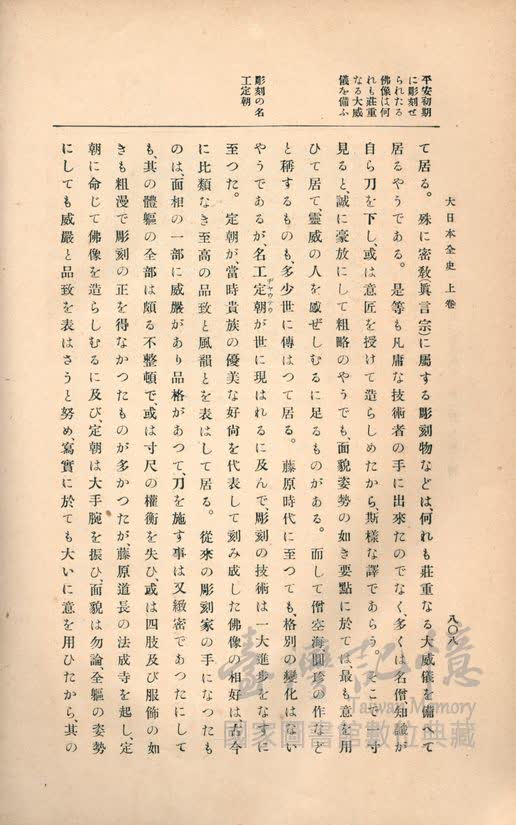 大日本全史 上卷
八〇八
平安初期
に彫刻せ
られたる
佛像は何
れも莊重
なる大威
儀を備ふ
彫刻の名
工定朝
て居る。殊に密敎(眞言宗)に屬する彫刻物などは、何れも莊重なる大威儀を備へて
居るやうである。是等も凡庸な技術者の手に出來たのでなく、多くは名僧知識が
自ら刀を下し、或は意匠を授けて造らしめたから、斯樣な譯であらう。そこで一寸
見ると、誠に豪放にして粗略のやうでも、面貌姿勢の如き要點に於ては、最も意を用
ひて居て、靈威の人を感ぜしむるに足るものがある。而して僧空海圓珍の作など
と稱するものも、多少世に傳はつて居る。藤原時代に至つても、格別の變化はない
やうであるが、名工定朝ヂヤウテウが世に現はれるに及んで、彫刻の技術は一大進步をなすに
至つた。定朝が、當時貴族の優美な好尙を代表して刻み成した佛像の相好は、古今
に比類なき至高の品致と風韻とを表はして居る。從來の彫刻家の手になつたも
のは、面相の一部に威嚴があり品格があつて、刀を施す事は又緻密であつたにして
も、其の體軀の全部は頗る不整頓で、或は寸尺の權衡を失ひ、或は四肢及び服飾の如
きも粗漫で彫刻の正を得なかつたものが多かつたが、藤原道長の法成寺を起し、定
朝に命じて佛像を造らしむるに及び、定朝は大手腕を振ひ、面貌は勿論、全軀の姿勢
にしても威嚴と品致を表はさうと努め、寫實に於ても大いに意を用ひたから、其の
臺灣記憶
Taiwan Memory
國家圖書館數位典藏